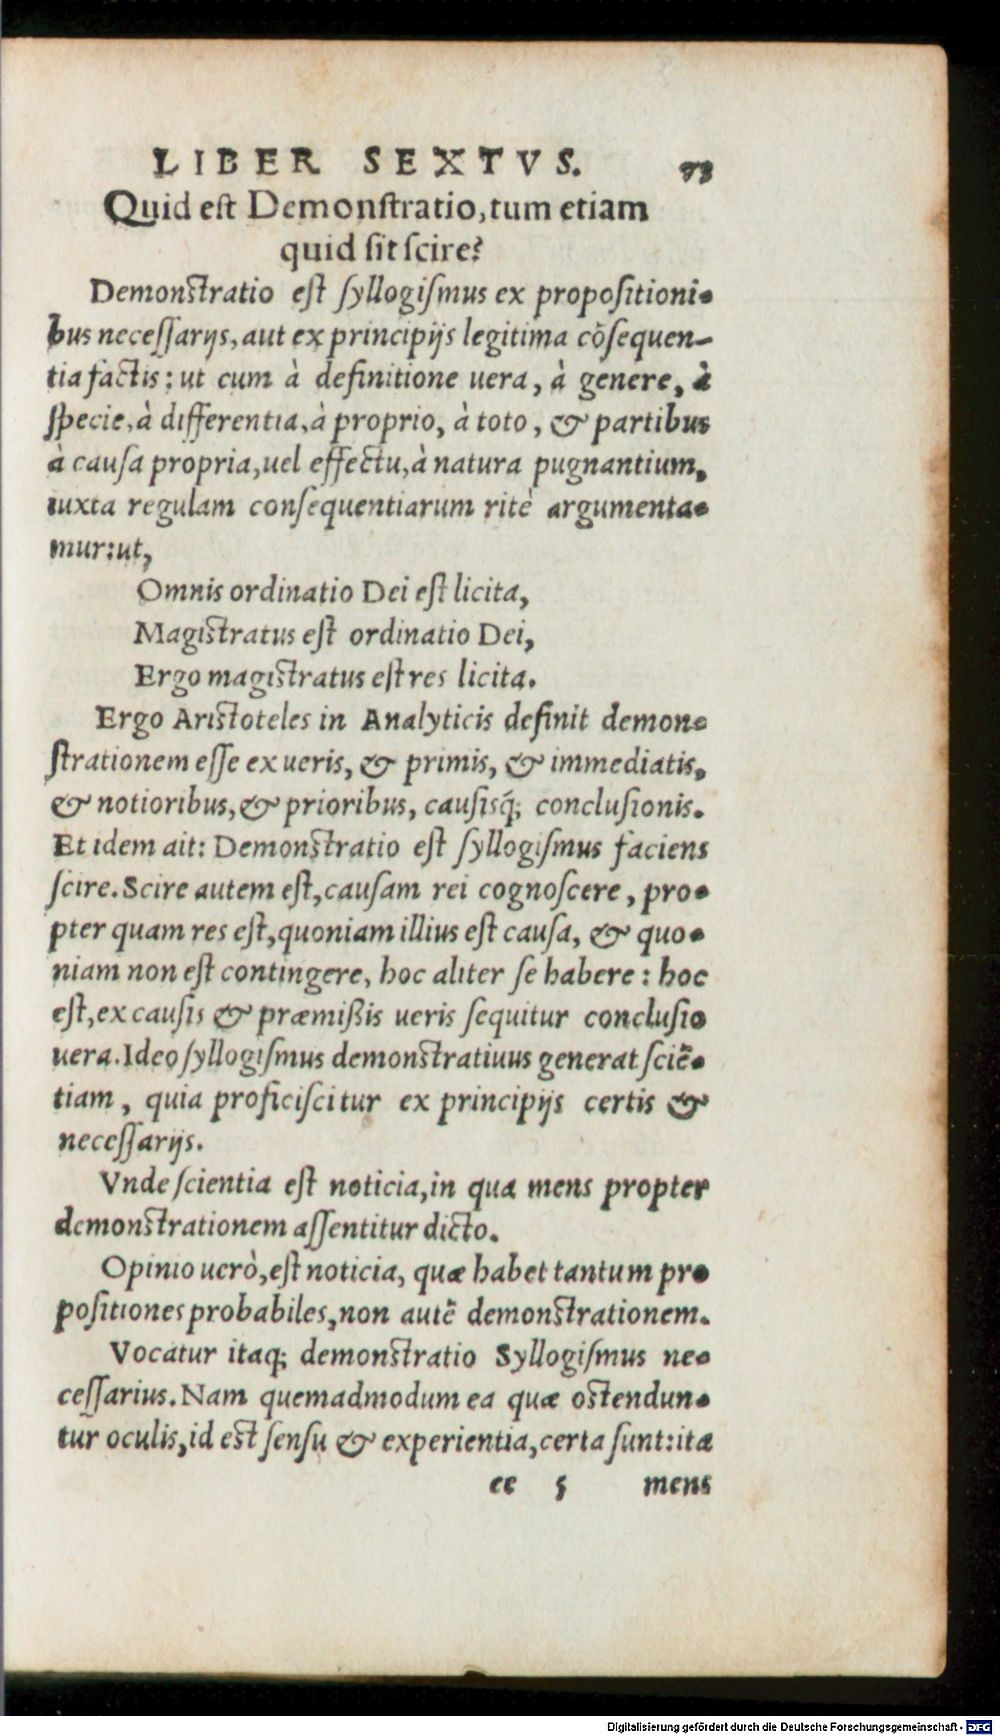 LIBER SEXTVS. 73
Quid eſt Demonſtratio, tum etiam
quid ſit ſcire?
Demonſtratio eſt ſyllogiſmus ex propoſitioni-
bus neceſſarijs, aut ex principijs legitima cõſequen-
tia factis: ut cum à definitione uera, à genere, à
ſpecie, à differentia, à proprio, à toto, & partibus
à cauſa propria, uel effectu, à natura pugnantium,
iuxta regulam conſequentiarum ritè argumenta-
mur: ut,
Omnis ordinatio Dei eſt licita,
Magiſtratus eſt ordinatio Dei,
Ergo magiſtratus eſt res licita.
Ergo Ariſtoteles in Analyticis definit demon-
ſtrationem eſſe ex ueris, & primis, & immediatis,
& notioribus, & prioribus, cauſisq́; concluſionis.
Et idem ait: Demonſtratio eſt ſyllogiſmus faciens
ſcire. Scire autem eſt, cauſam rei cognoſcere, pro-
pter quam res eſt, quoniam illius eſt cauſa, & quo-
niam non eſt contingere, hoc aliter ſe habere: hoc
eſt, ex cauſis & præmißis ueris ſequitur concluſio
uera. Ideo ſyllogiſmus demonſtratiuus generat ſciẽ-
tiam, quia proficiſcitur ex principijs certis &
neceſſarijs.
Vnde ſcientia eſt noticia, in qua mens propter
demonſtrationem aſſentitur dicto.
Opinio uerò, eſt noticia, quæ habet tantum pro
poſitiones probabiles, non autẽ demonſtrationem.
Vocatur itaq; demonſtratio Syllogiſmus ne-
ceſſarius. Nam quemadmodum ea quæ oſtendun-
tur oculis, id eſt ſenſu & experientia, certa ſunt: ita
ee 5 mens
Digitalisierung gefördert durch die Deutsche Forschungsgemeinschaft - DFG